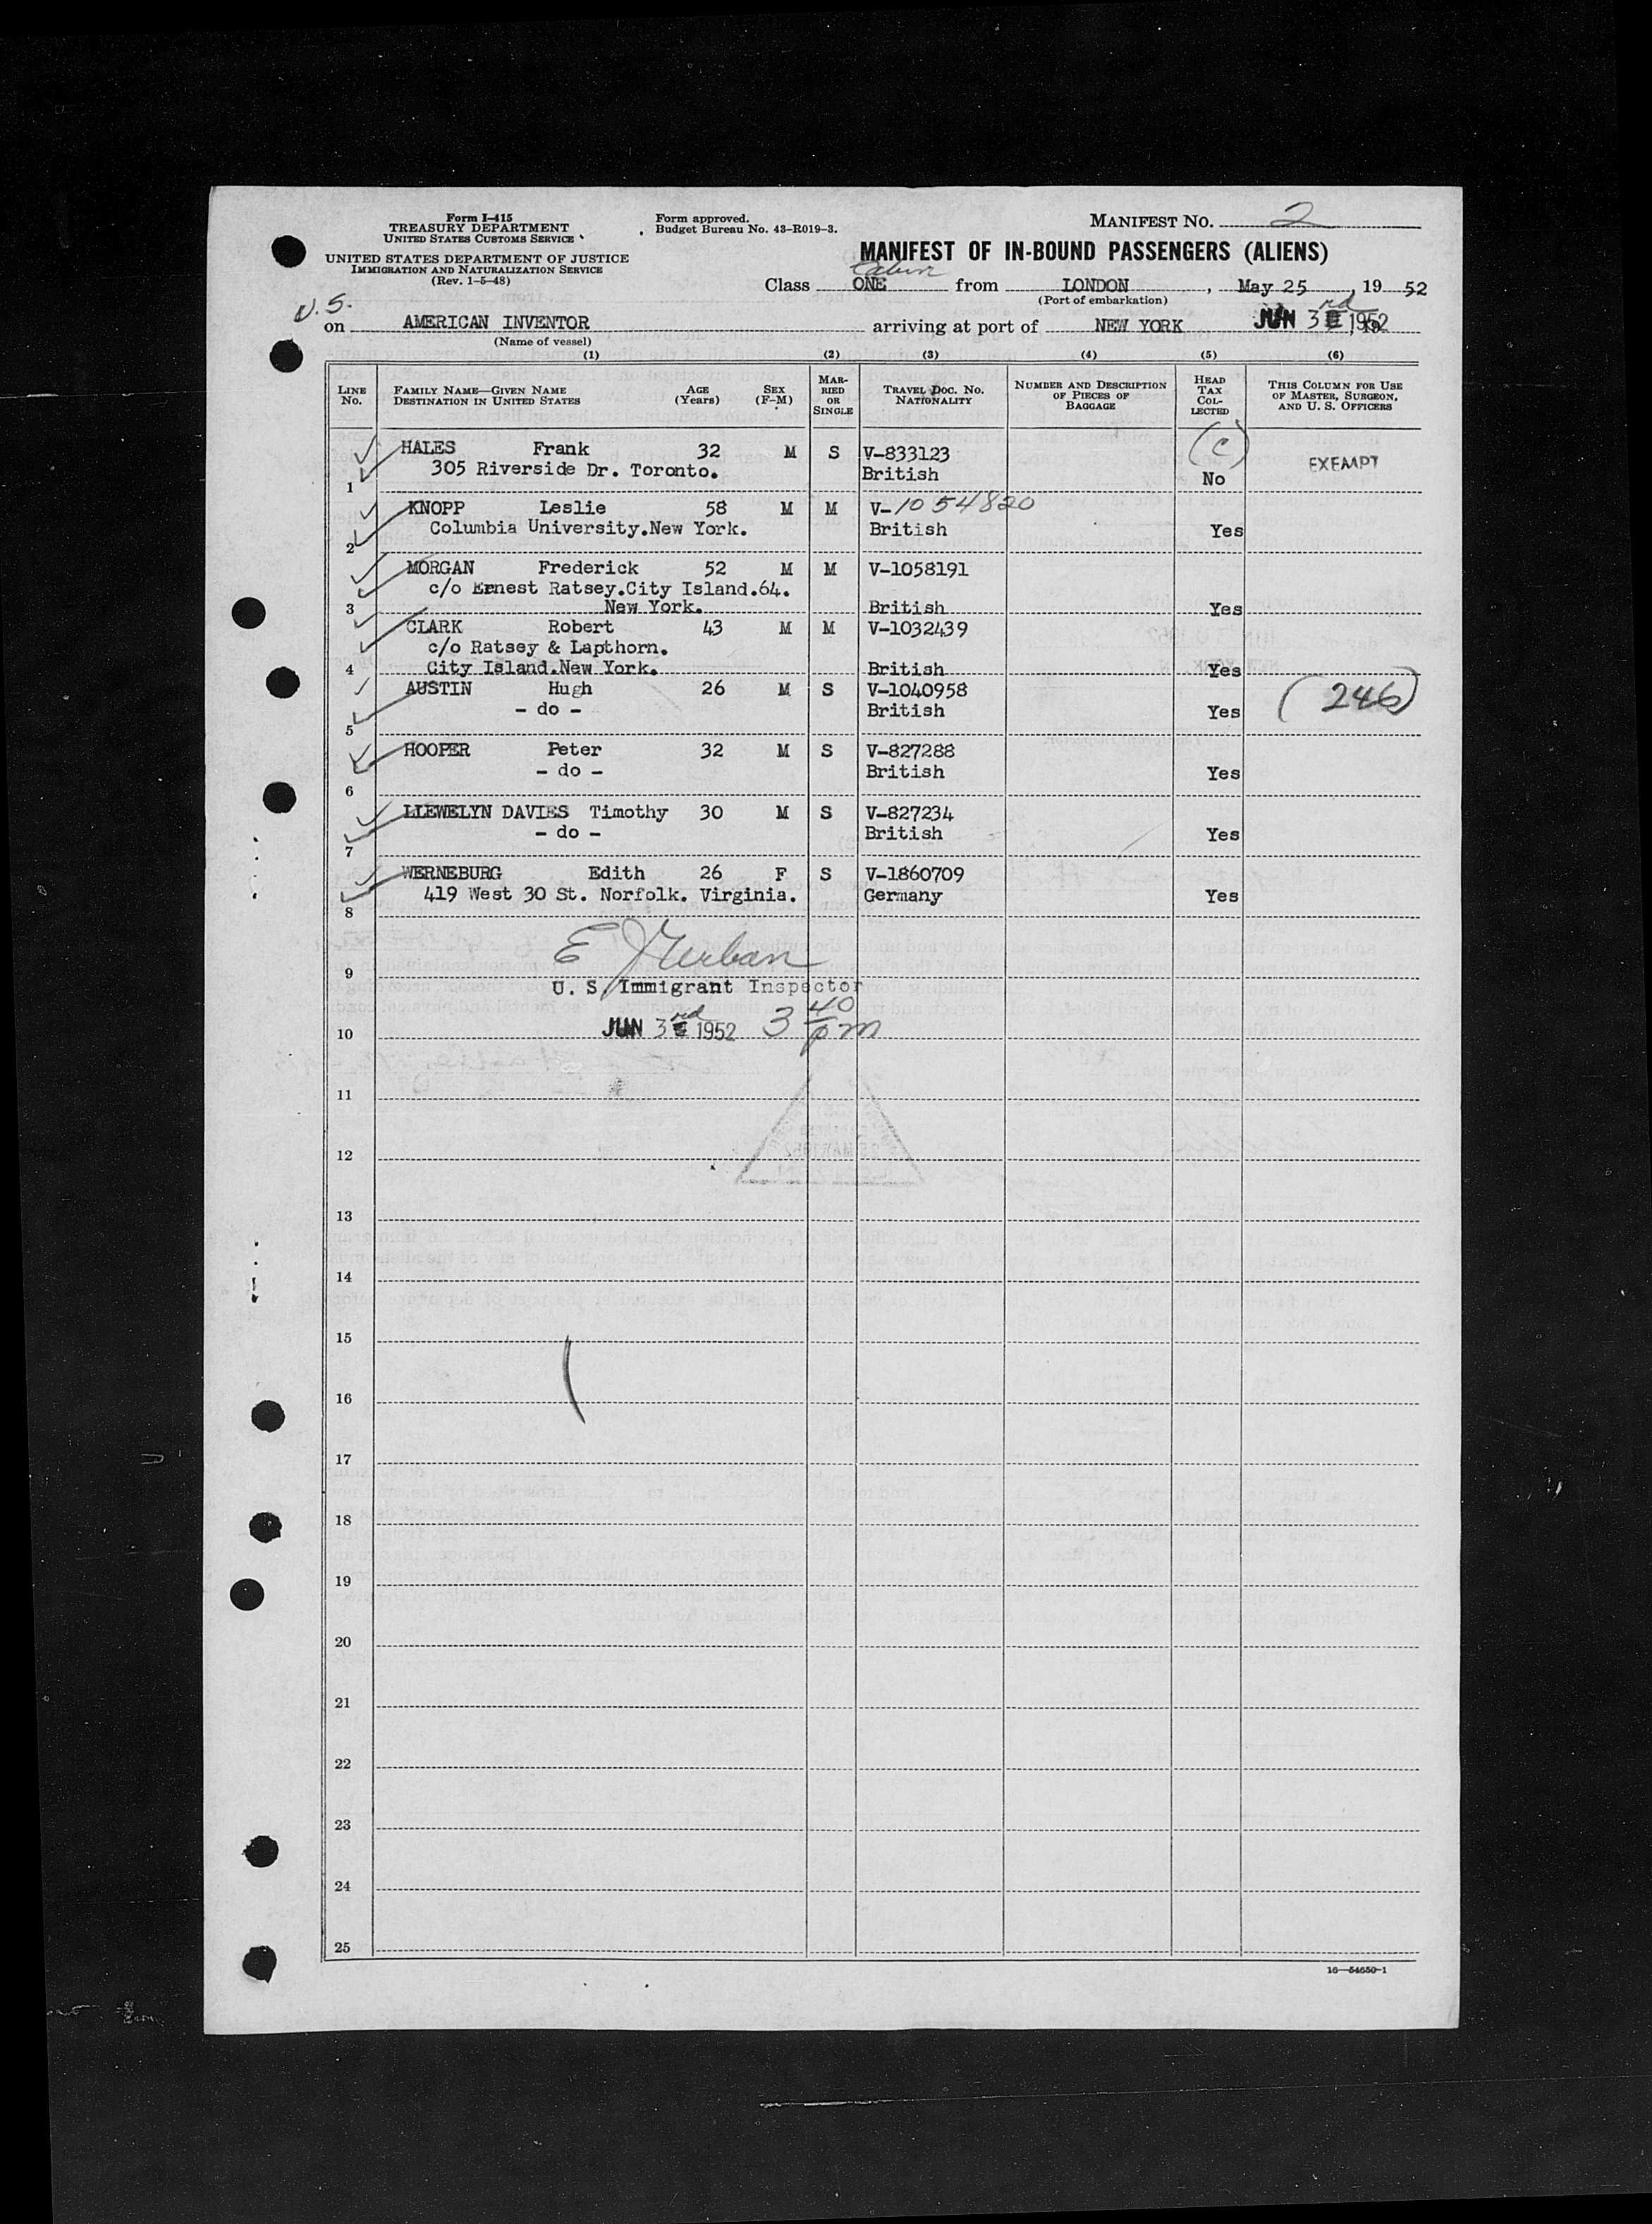 Form I-415
TREASURY DEPARTMENT
UNITED STATES CUSTOMS SERVICE
UNITED STATES DEPARTMENT OF JUSTICE
IMMIGRATION AND NATURALIZATION SERVICE
(Rev. 1-5-48)
Form approved.
Budget Bureau No. 43-R019-3.
MANIFEST NO. 2
MANIFEST OF IN-BOUND PASSENGERS (ALIENS)
Cabin
Class ONE from LONDON, May 25, 19 52
(Port of embarkation)
U.S.
on AMERICAN INVENTOR arriving at port of NEW YORK JUN 3 rd 1952
(Name of vessel)
(1) (2) (3) (4) (5) (6)
LINE No. FAMILY NAME—GIVEN NAME DESTINATION IN UNITED STATES AGE (Years) SEX (F-M) MARRIED OR SINGLE TRAVEL DOC. NO. NATIONALITY NUMBER AND DESCRIPTION OF PIECES OF BAGGAGE HEAD TAX COLLECTED THIS COLUMN FOR USE OF MASTER, SURGEON, AND U. S. OFFICERS
HALES Frank 32 M S V-833123 (C) EXEMPT
305 Riverside Dr. Toronto. British No
1
KNOPP Leslie 58 M M V-1054820
Columbia University.New York. British Yes
2
MORGAN Frederick 52 M M V-1058191
c/o Ernest Ratsey.City Island.64.
3 New York. British Yes
CLARK Robert 43 M M V-1032439
c/o Ratsey & Lapthorn.
4 City Island.New York. British Yes
AUSTIN Hugh 26 M S V-1040958 (246)
- do - British Yes
5
HOOPER Peter 32 M S V-827288
- do - British Yes
6
LLEWELYN DAVIES Timothy 30 M S V-827234
- do - British Yes
7
WERNEBURG Edith 26 F S V-1860709
419 West 30 St. Norfolk. Virginia. Germany Yes
8
9
U. S. Immigrant Inspector
JUN 3 rd 1952 3 40 pm
10
11
12
13
14
15
16
17
18
19
20
21
22
23
24
25
16—54650-1